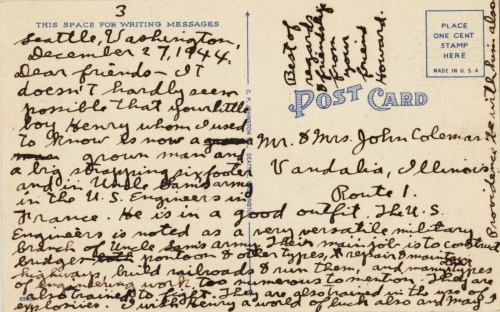 3
THIS SPACE FOR WRITING MESSAGES
Seattle, Washington,
December 27, 1944.
Dear friends - It
doesn't hardly seem
possible that your little
boy Henry whom I used
to know is now a
grown man and
a big strapping six footer
and in Uncle Sam's army
in the U.S. Engineers in
France. He is in a good outfit. The U.S.
Engineers is noted as a very versatile military
branch of Uncle Sam's army. Their main job is to construct
bridges both pontoon & other types, & repair & maintain
highways, build railroads & run them, and many types
of engineering work too numerous to mention. They are
also trained to fight. They are also trained in the use of
explosives. I wish Henry a world of luck also and may
Providence be with him also
Best of
regards
& friendship
from
your
friend
Howard.
PLACE
ONE CENT
STAMP
HERE
MADE IN U.S.A
POST CARD
Mr. & Mrs. John Coleman
Vandalia, Illinois
Route 1.